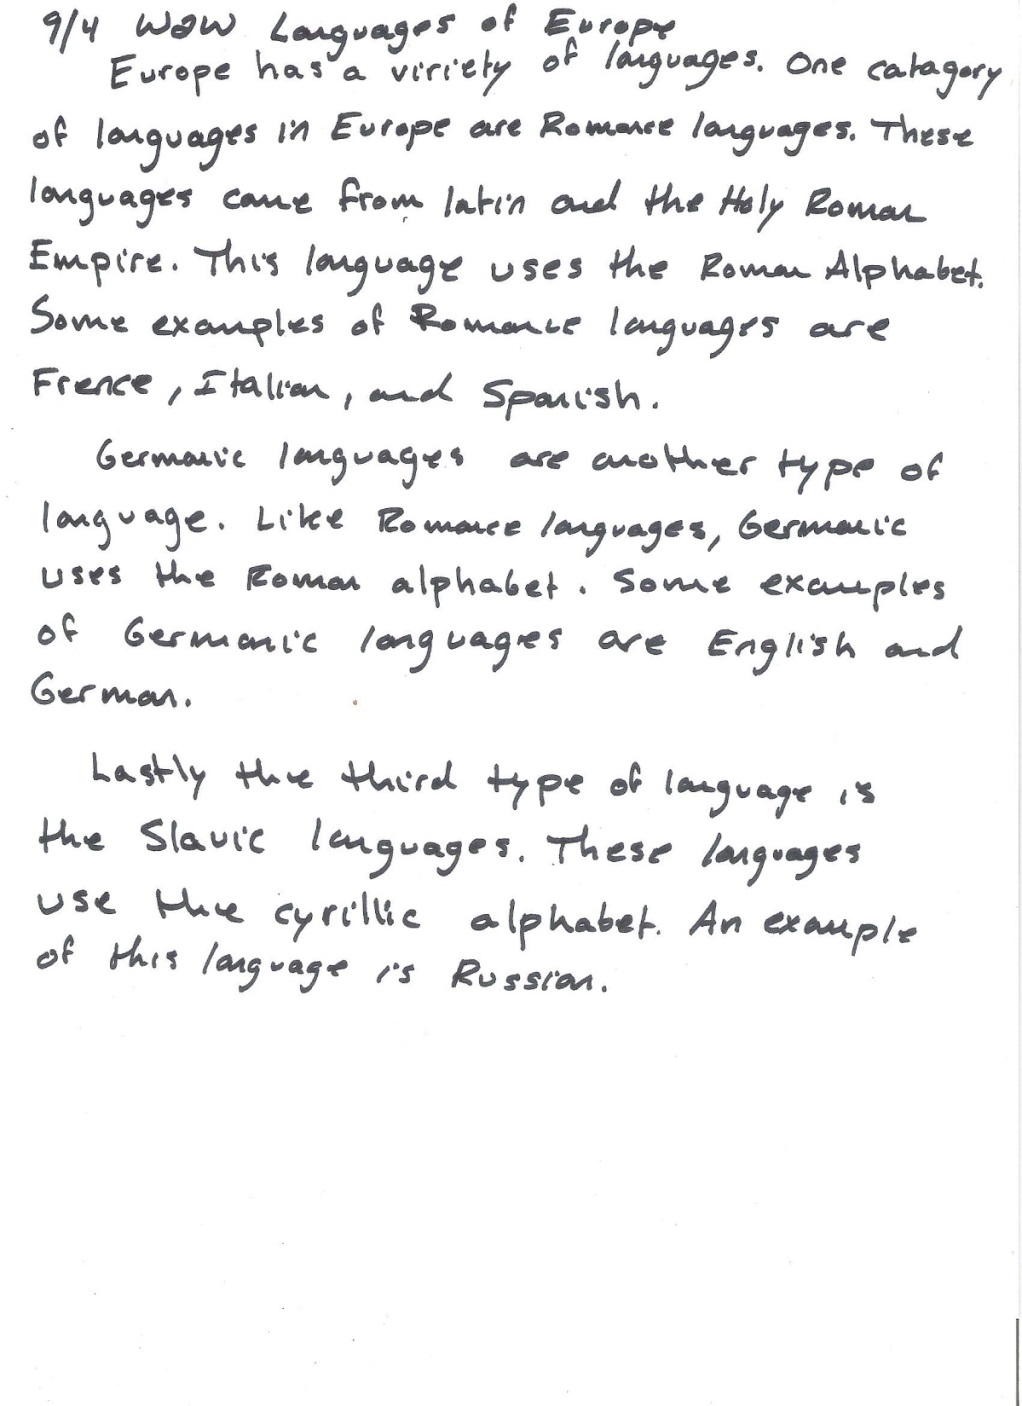 9/4 WOW Languages of Europe
Europe has a viriety of languages. One catagory
of languages in Europe are Romance languages. These
languages came from latin and the Holy Roman
Empire. This language uses the Roman Alphabet.
Some examples of Romance languages are
Frence, Italian, and Spanish.
Germanic languages are another type of
language. Like Romance languages, Germanic
uses the Roman alphabet. Some examples
of Germanic languages are English and
German.
Lastly the third type of language is
the Slavic languages. These languages
use the cyrillic alphabet. An example
of this language is Russian.